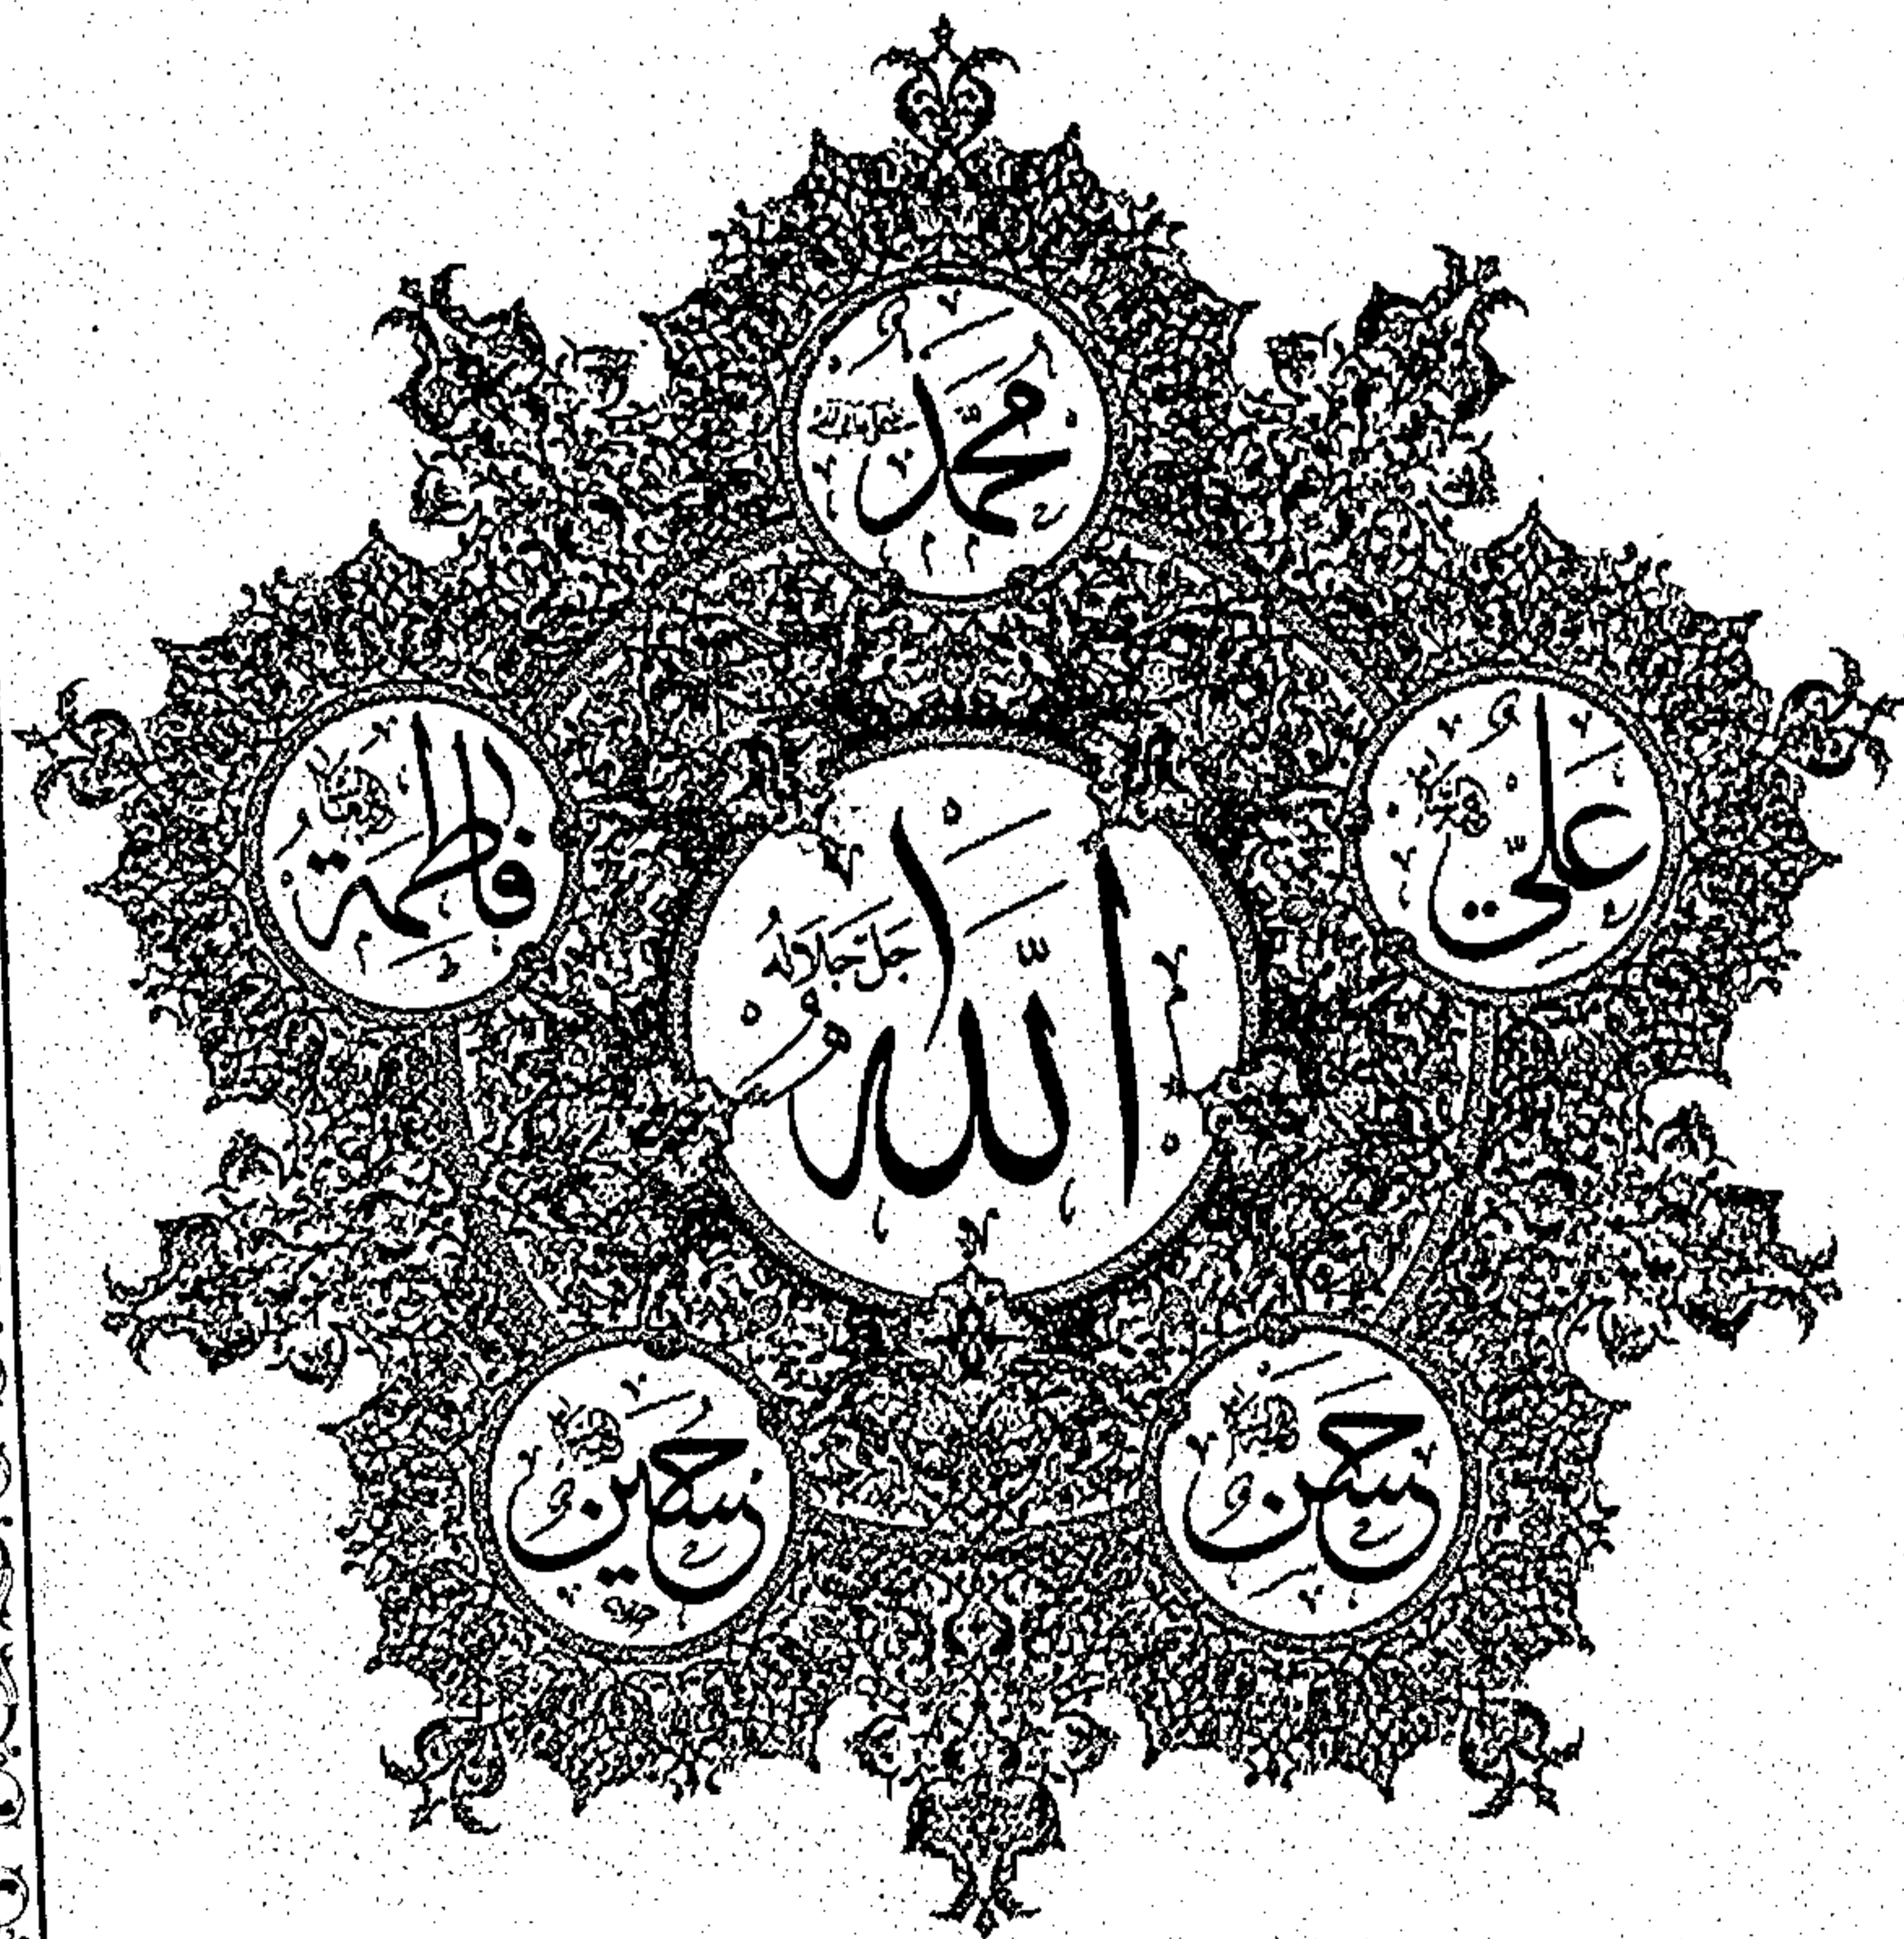 محمد
علي
فاطمة
الله
جل جلاله
حسن
حسين